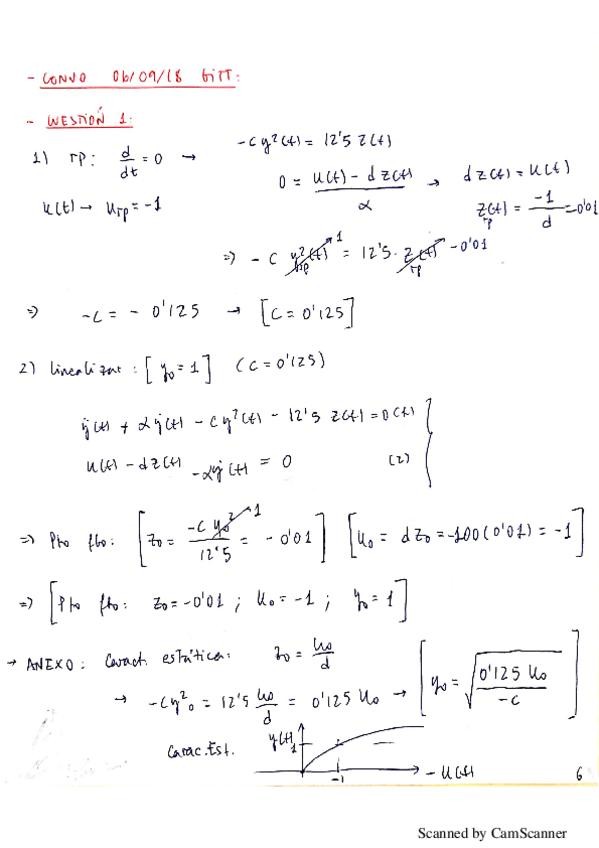 - CONVO 06/09/18 GITT:
- CUESTIÓN 1:
1) rp: d/dt = 0 → -cy²(t) = 12'5 z(t)
0 = u(t) - dz(t) / α → dz(t) = u(t)
u(t) → u_rp = -1
z(t)_rp = -1/d = -0'01
⇒ -c y²(t)_rp 1 = 12'5 · z(t)_rp -0'01
⇒ -c = -0'125 → [c = 0'125]
2) linealizar: [y₀ = 1] (c = 0'125)
ÿ(t) + αẏ(t) - cy²(t) - 12'5 z(t) = 0 (1)
u(t) - dz(t) - αẏ(t) = 0 (2)
⇒ Pto fto: [z₀ = -c y₀² 1 / 12'5 = -0'01] [u₀ = dz₀ = -100(0'01) = -1]
⇒ [Pto fto: z₀ = -0'01 ; u₀ = -1 ; y₀ = 1]
→ ANEXO: Caract. estática: z₀ = u₀/d
→ -cy²₀ = 12'5 u₀/d = 0'125 u₀ → [y₀ = √(0'125 u₀ / -c)]
Carac. Est. y(t) 1
-1 -u(t)
6
Scanned by CamScanner